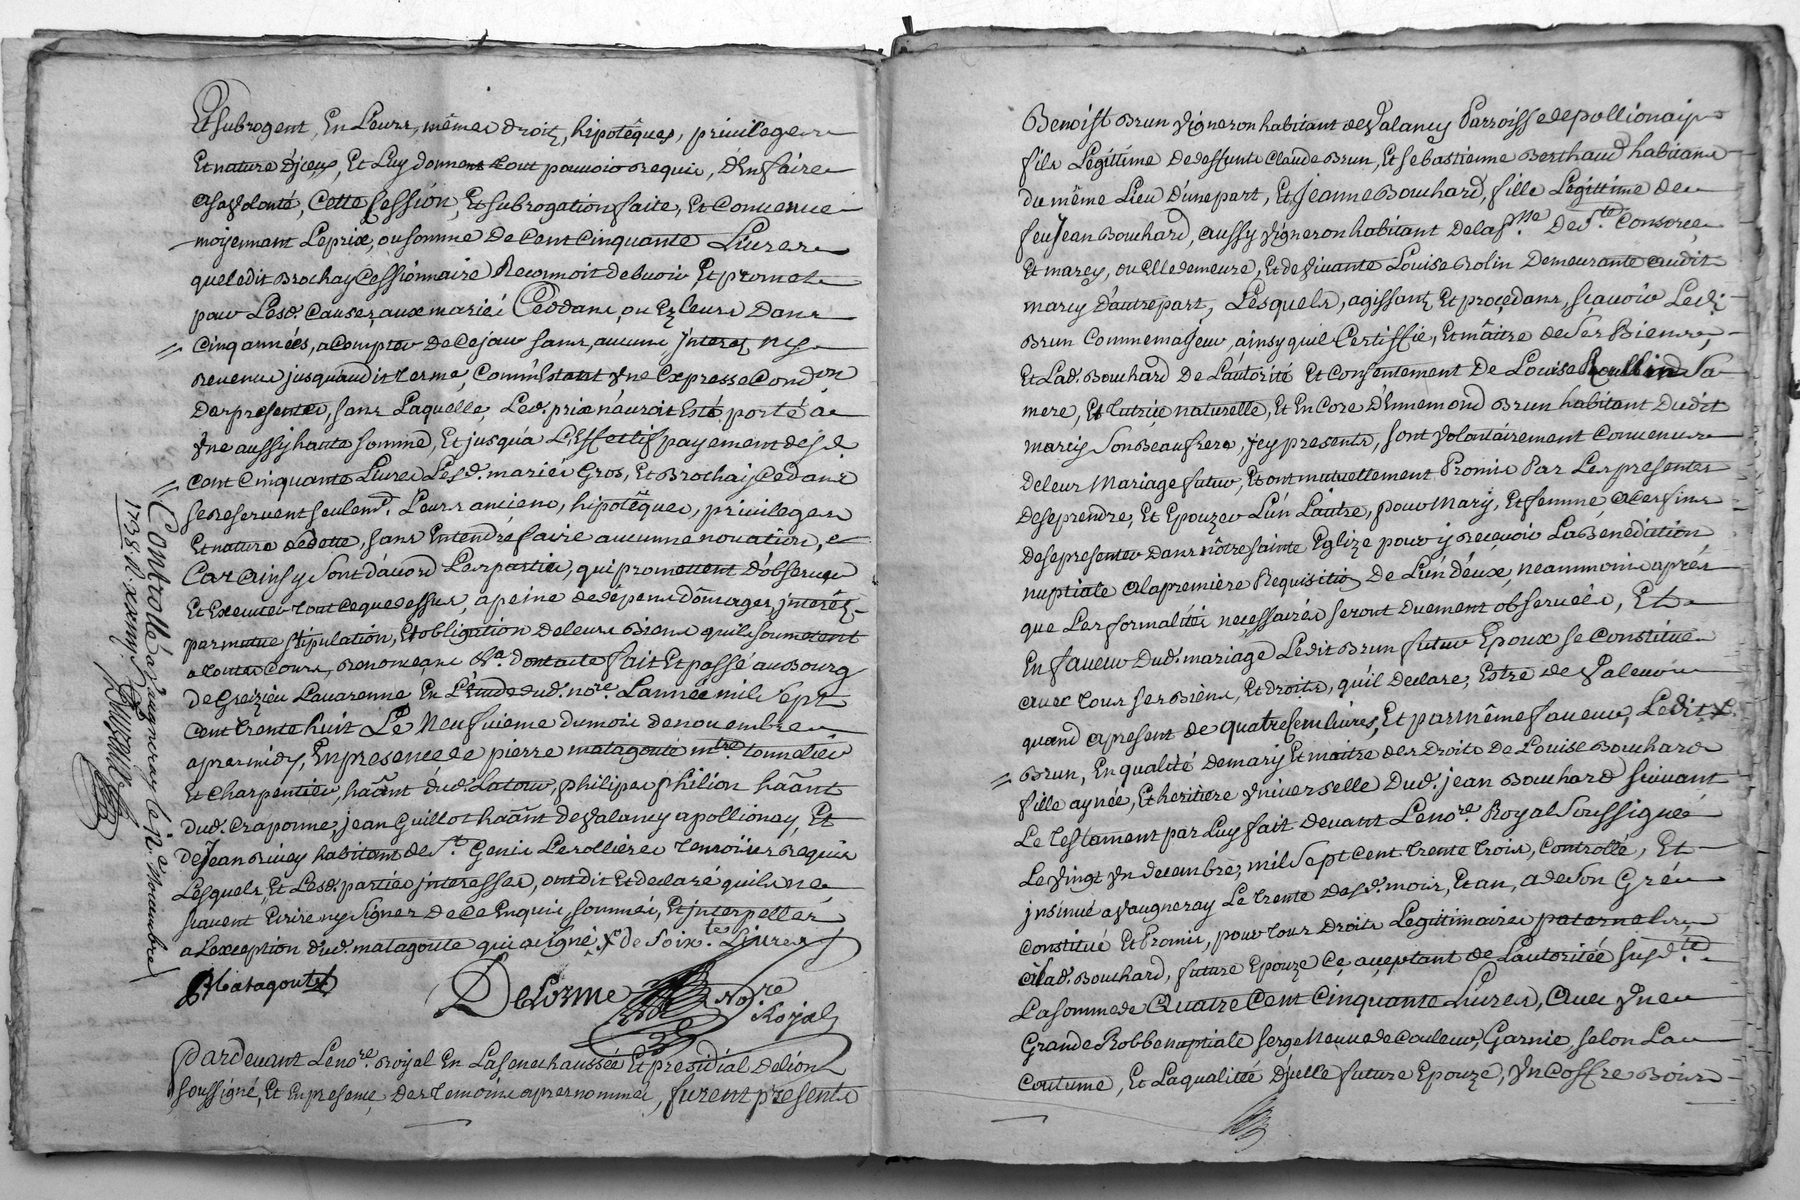 Et subrogent, En Leurs, mêmes droitz, hipotêques, privileges
Et nature d'jceux, Et Luy donnent tout pouvoir requis, d'En faire
a sa volonté, Cette Cession, Et subrogation faite, Et Convenue
moyennant Le prix, ou somme De Cent Cinquante Livres
que ledit Brochay Cessionnaire Reconnoit debvoir, Et promet
pour Lesd. Causes, aux mariés Ceddans, ou Ez leurs Dans
Cinq années, a Compter De Ce jour sans, aucuns jnteretz ny
revenus jusqu'audit terme, Comm'Estant Une Expresse Condon
Des presentes, sans Laquelle, Led. prix n'auroit Esté porté a
Une aussy haute somme, Et jusqu'a L'Effectif payement desd.
cent Cinquante Livres Lesd. mariés Gros, Et Brochaj Cedans
se reservent seulemt. Leurs anciens, hipotêques, privileges
Et nature de dotte, sans Entendre faire aucunne novation, &
Car ainsy sont d'acord Les parties, qui promettent d'observer
Et Executer tout ce que dessus, a peine de dépens dômages, jnterêtz
par mutue stipulation, Et obligation de leurs Biens qu'ils soumetent
a toutes Cours, Renonceans &a. dont acte fait Et passé au Bourg
de Grezieu Lavarenne En L'Etude dud. nore. L'année mil sept
Cent trente huit Le Neufvieme du mois de novembre
apres midy, En presence de pierre matagoute mtre. tonnelier
Et Charpentier, haânt dud. Latour, philipes philion haânt
dud. Craponne, jean Guillot haânt de Valancy a pollionay, Et
de Jean Rivey habitant de St. Genis Les ollières temoins Requis
Lesquels, Et Lesd. parties jnteressés, ont dit Et declaré qu'ils ne
scavent Ecrire ny signer De Ce Enquis sommés, Et jnterpellés
a L'exception dud. matagoute qui a signé, X de soixte. Livres
Matagoutte
Delorme Nore
Royal
Pardevant Le nore. Royal En La senechaussée Et presidial de lion
soussigné, Et En presence Des temoins apres nommés, furent presents
Controllé a Vaugneray le 12e. Novembre
1738. R. xxiiij s.
Benoist Brun Vigneron habitant de Valancy Parroisse de pollionay
fils Légitime De deffunts Claude Brun, Et sebastienne Berthaud habitans
du même Lieu D'une part, Et Jeanne Bouchard, fille Legittime de
feu Jean Bouchard, aussy Vigneron habitant de la psse De Ste. Consorce
Et marcy, ou Elle demeure, Et de Vivante Louise Rolin Demeurante audit
marcy D'autre part, Lesquels, agissant, Et procedans, scavoir Led.
Brun Comme majeur, ainsy qu'il Certiffie, Et maitre de Ses Biens,
Et Lad. Bouchard De L'autorité Et Consentement De Louise Roullin Sa
mere, Et tutrice naturelle, Et Encore D'Ennemond Brun habitant Dudit
marcy Son Beaufrere, jcy presents, sont Volontairement Convenus
De leur Mariage futur, Et ont mutuellement Promis Par Les presentes
De se prendre, Et Epouzer L'un L'autre, pour Mary, Et femme, a Ces fins
De se presenter Dans nôtre sainte Eglize pour y recevoir La Benediction
nuptiale a La premiere Requisition De L'un d'eux, neammoins aprés
que Les formalités necessaires seront Duement observées, Et
En faveur Dud. mariage Ledit Brun futur Epoux se Constitue
avec tous ses Biens, Et droits, qu'il Declare, Estre de Valeur
quand a present de quatre cens livres, Et par même faveur, Ledit X.
Brun, En qualité De mary Et maitre des Droits De Louise Bouchard
fille aynée, Et heritiere Universelle Dud. jean Bouchard suivant
Le testament par Luy fait devant Le nore. Royal soussigné
Le Vingt Un decembre, mil sept Cent trente trois, Controllé, Et
jnsinué a Vaugneray Le trente desd. mois, Et an, a de son Gré
Constitué Et Promis, pour tous Droits Legitimaires paternels,
a Lad. Bouchard, future Epouze Ce, acceptant de L'autoritée susd.te
La somme de Quatre Cent Cinquante Livres, avec Une
Grande Robbe nuptiale serge Neuve de Couleur, Garnie, selon La
Coutume, Et La qualitée d'jcelle future Epouze, Un Coffre Bois